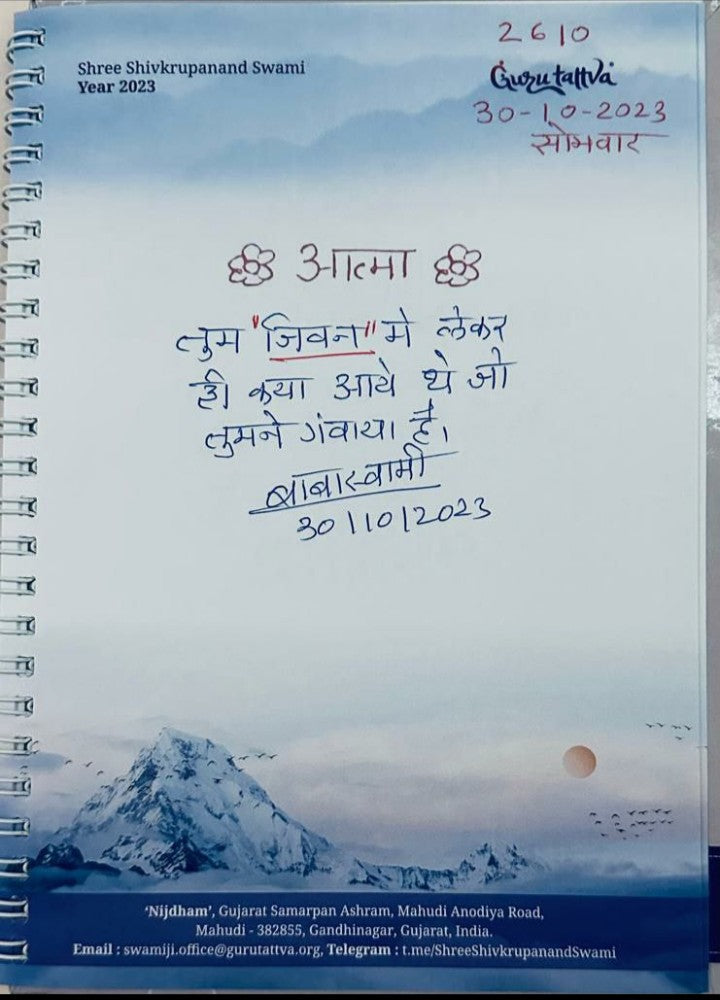 Shree Shivkrupanand Swami
Year 2023
2610
Gurutattva
30-10-2023
सोमवार
आत्मा
तुम "जिवन" मे लेकर
ही क्या आये थे जो
तुमने गंवाया है।
बाबास्वामी
30/10/2023
'Nijdham', Gujarat Samarpan Ashram, Mahudi Anodiya Road,
Mahudi - 382855, Gandhinagar, Gujarat, India.
Email : swamiji.office@gurutattva.org, Telegram : t.me/ShreeShivkrupanandSwami